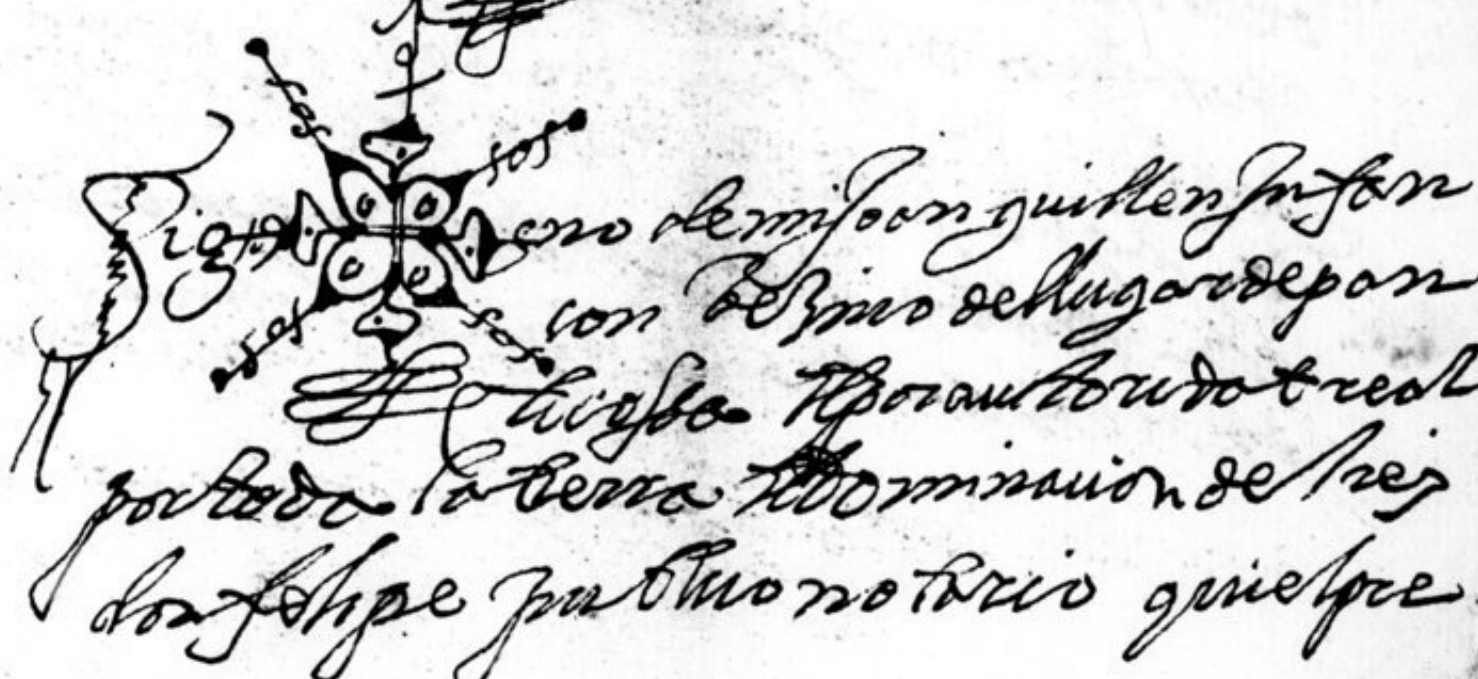 Sig no de mi Joan guillen Infan
con Vezino del lugar de pan
ticossa et por autoridat real
por toda la tierra et dominacion del rey
don felipe publico notario qui el pre